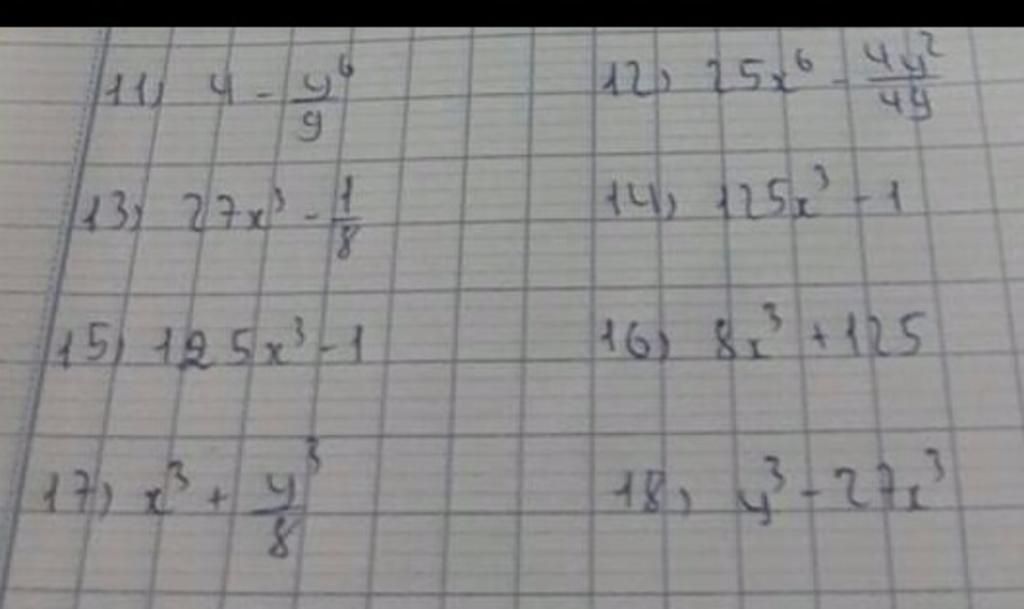 11) 4 - y⁶/9 12) 25x⁶ - 4y²/49
13) 27x³ - 1/8 14) 125x³ - 1
15) 125x³ - 1 16) 8x³ + 125
17) x³ + y³/8 18) y³ - 27x³